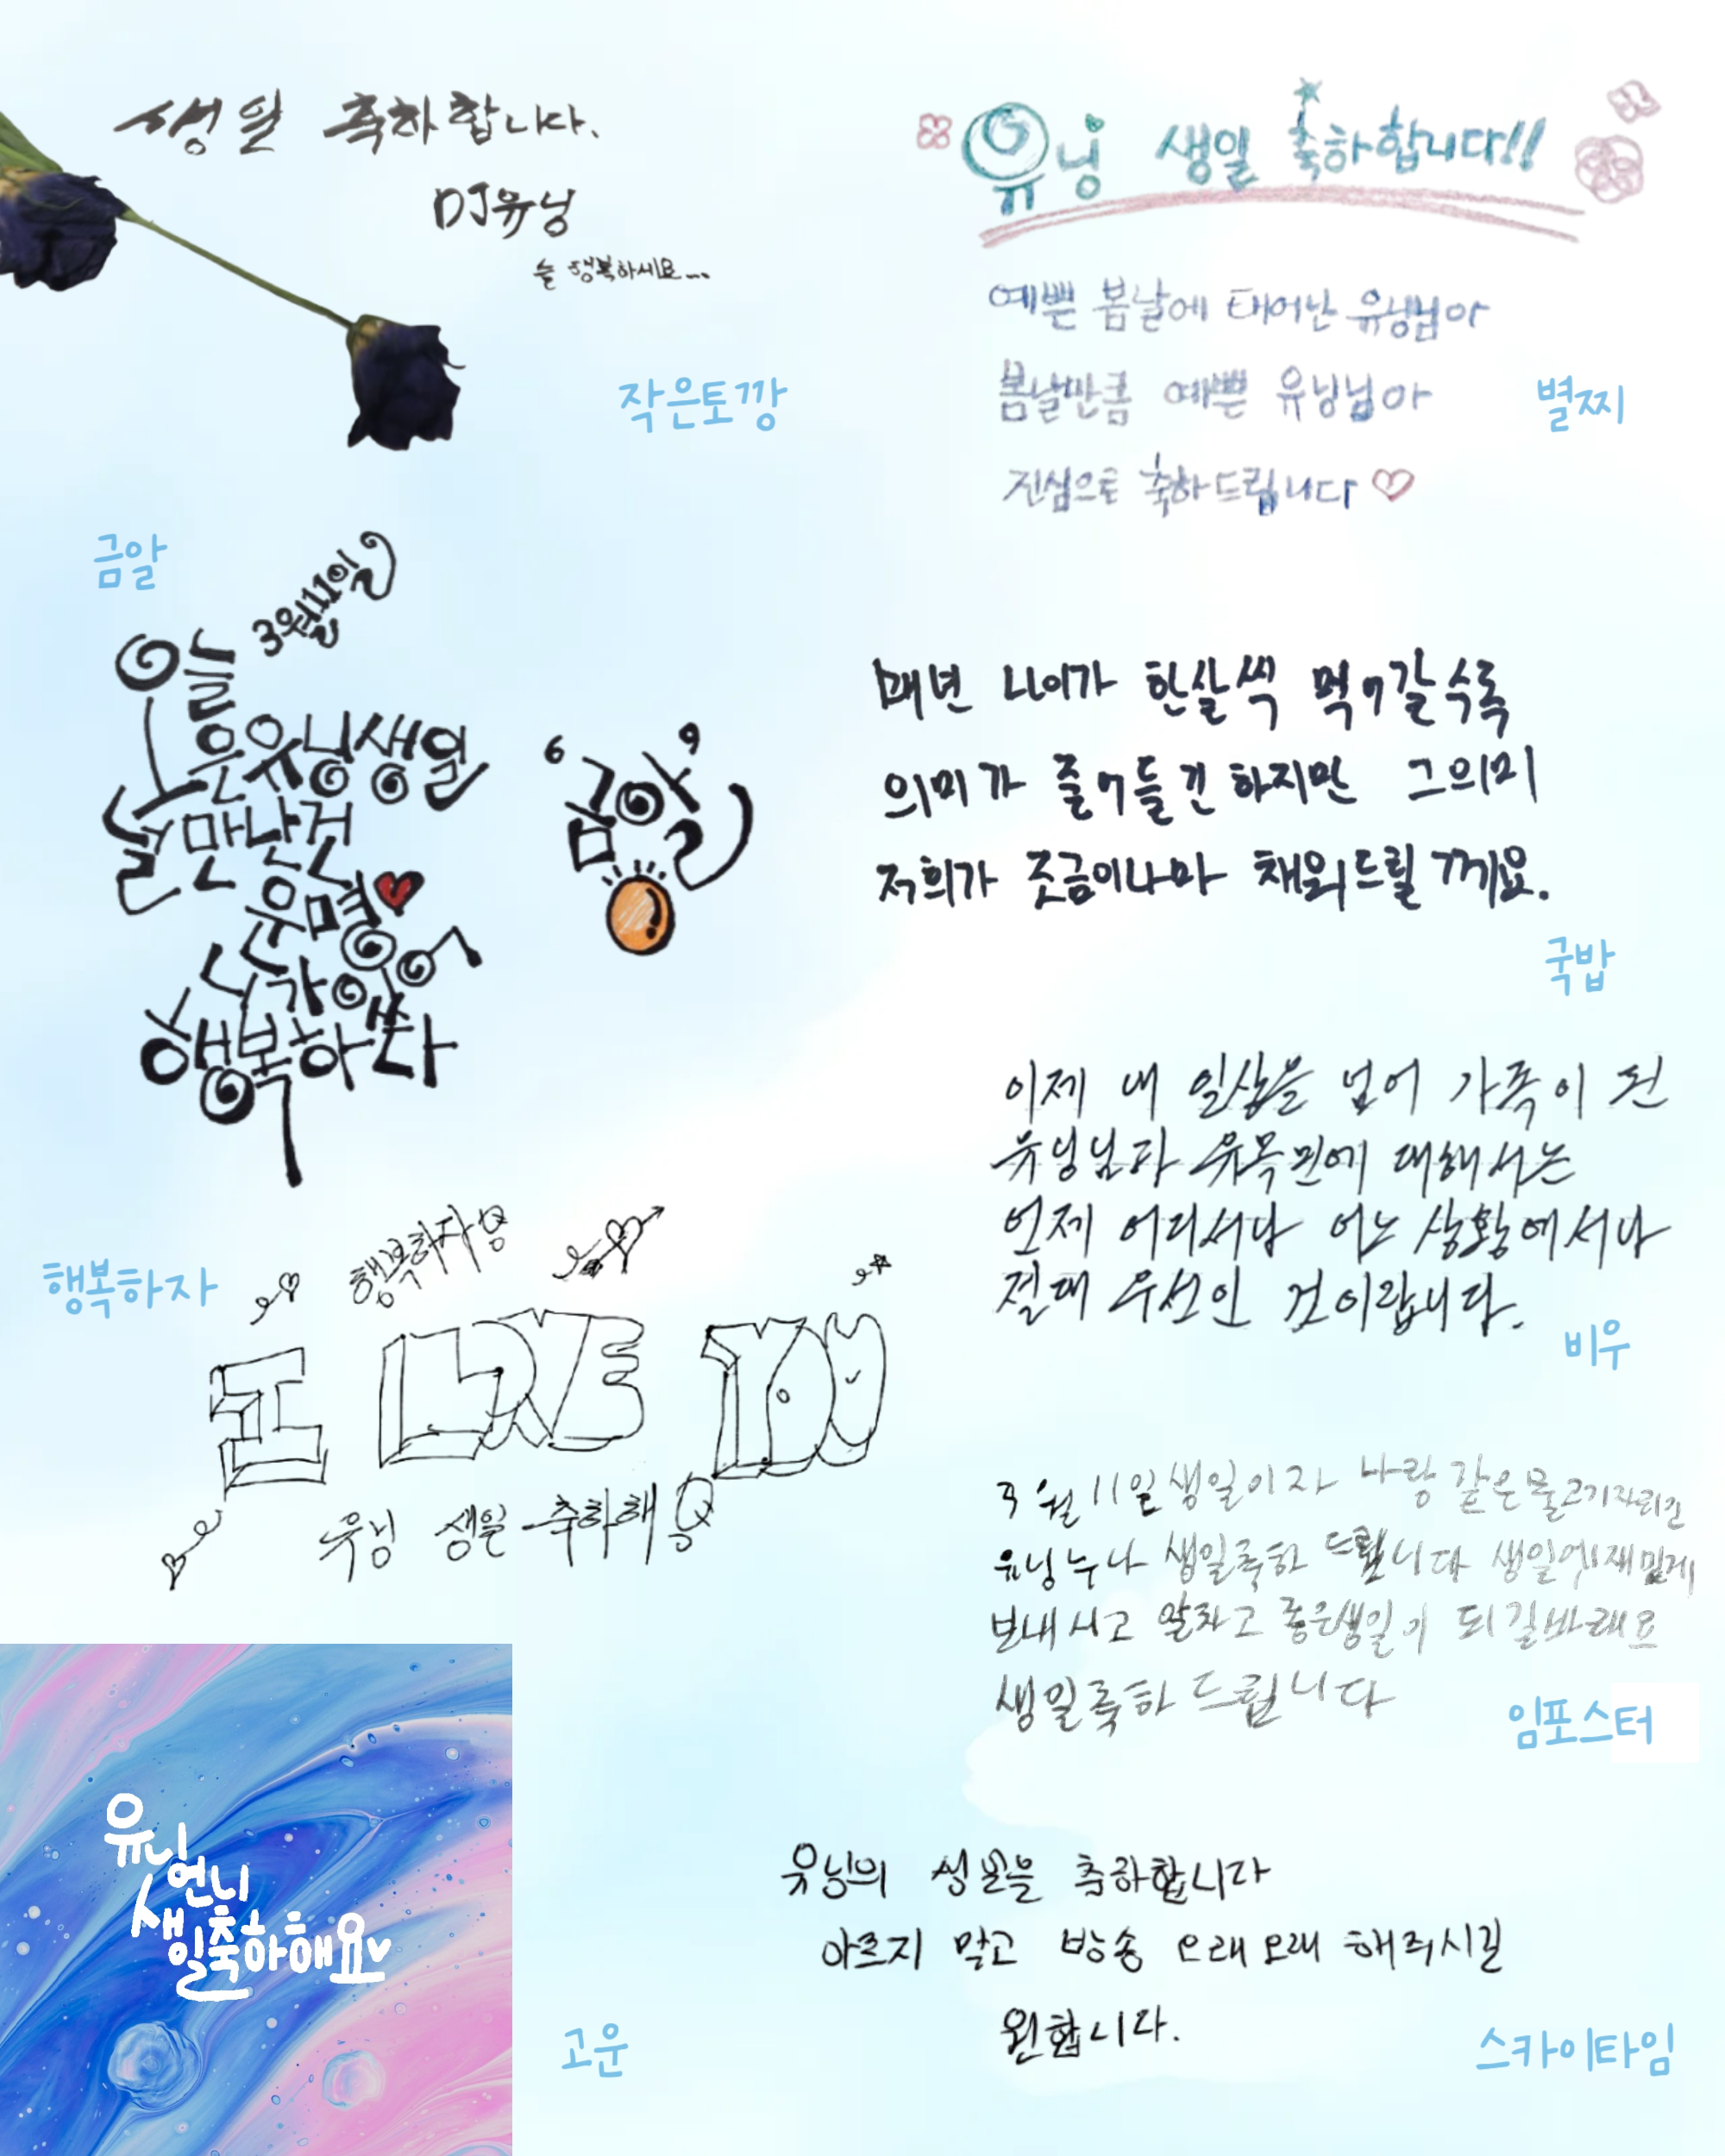 생일 축하합니다.
DJ유닝
늘 행복하세요...
작은토깡
유닝 생일 축하합니다!!
예쁜 봄날에 태어난 유닝님아
봄날만큼 예쁜 유닝님아
진심으로 축하드립니다
별찌
금알
3월11일
오늘
은유닝생일
널만난건
운명
니가있어
행복하쓰다
금알
매년 나이가 한살씩 먹어갈수록
의미가 줄어들긴 하지만 그의미
저희가 조금이나마 채워드릴께요.
국밥
이제 내 일상을 넘어 가족이 된
유닝님과 유목민에 대해서는
언제 어디서나 어느 상황에서나
절대 우선인 것이랍니다.
비우
행복하자
행복하자용
I LOVE YOU
유닝 생일 축하해용
3월 11일 생일이자 나랑 같은물고기자리인
유닝누나 생일축하 드립니다 생일에재밌게
보내시고 알차고 좋은생일이 되길바래요
생일축하 드립니다
임포스터
유니
언니
생
일축하해요
고운
유닝의 생일을 축하합니다
아프지 말고 방송 오래오래 해주시길
원합니다.
스카이타임